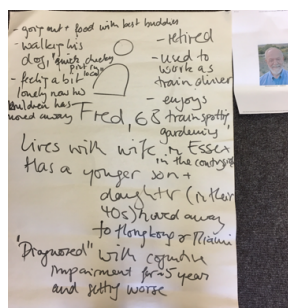 - going out + food with best buddies
- walking his
dog, "quick cheeky
pint in
local"
- feeling a bit
lonely now his
children has
moved away
- retired
- used to
work as
train driver
- enjoys
trainspotting
gardening
Fred, 68
Lives with wife in Essex
in the countryside
Has a younger son +
daughter (in their
40s) moved away
to Hong Kong or Miami
"Diagnosed" with cognitive
impairment for 5 year
and getting worse